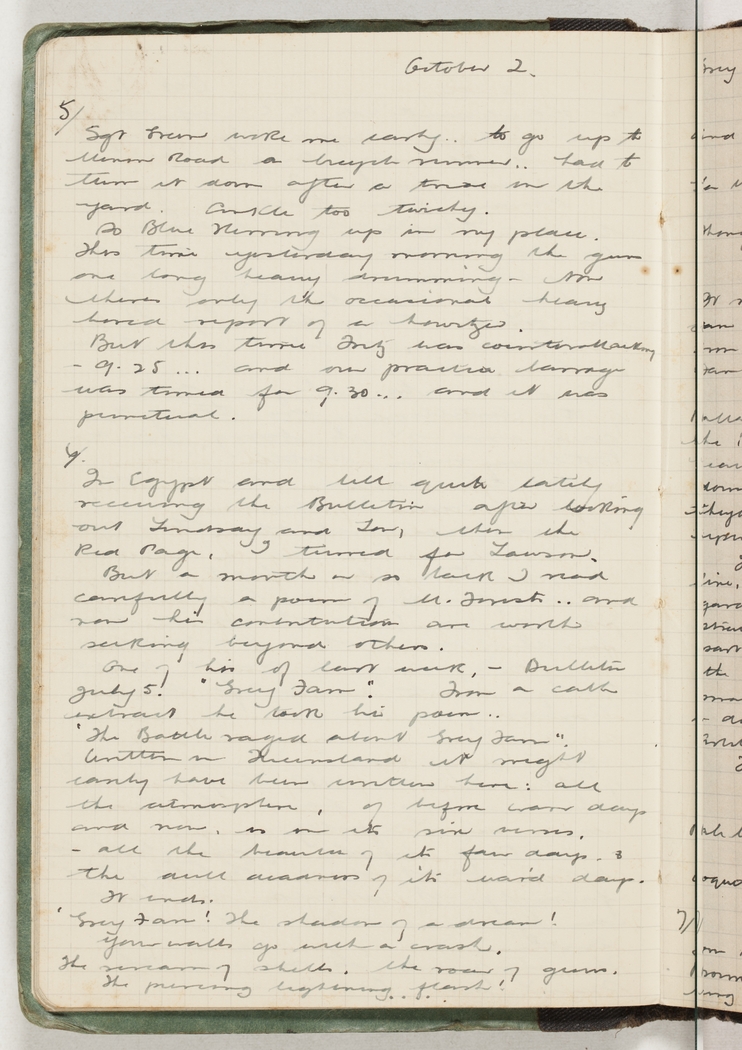 October 2.
5/
Sgt Green woke me early.. to go up to
Menin Road a bicycle runner.. had to
turn it down after a tryse in the
yard. Ankle too twisty.
So Blue Herring up in my place.
This time yesterday morning the guns
one long heavy drumming – Now
theres only the occasional heavy
bored report of a howitzer.
But this time Fritz was counterattacking
– 9.25... and our practice barrage
was timed for 9.30... and it was
punctual.
6/.
In Egypt and till quite lately
receiving the Bulletin after looking
out Lindsay and Low, then the
Red Page, I turned for Lawson.
But a month or so back I read
carefully a poem of M. Forrest.. and
now his contributions are worth
seeking beyond others.
One of his of last week, – Bulletin
July 5. "Grey Farm". From a cable
extract he took his poem..
"The Battle raged about Grey Farm".
Written in Queensland it might
easily have been written here: all
the atmosphere, of before war days
and now, is in its six verses,
– all the beauty of its fair days. &
the dull deadness of its war'd days.
It ends.
'Grey Farm! The shadow of a dream!
Your walls go with a crash.
The scream of shells. the roar of guns.
The piercing lightening flash!